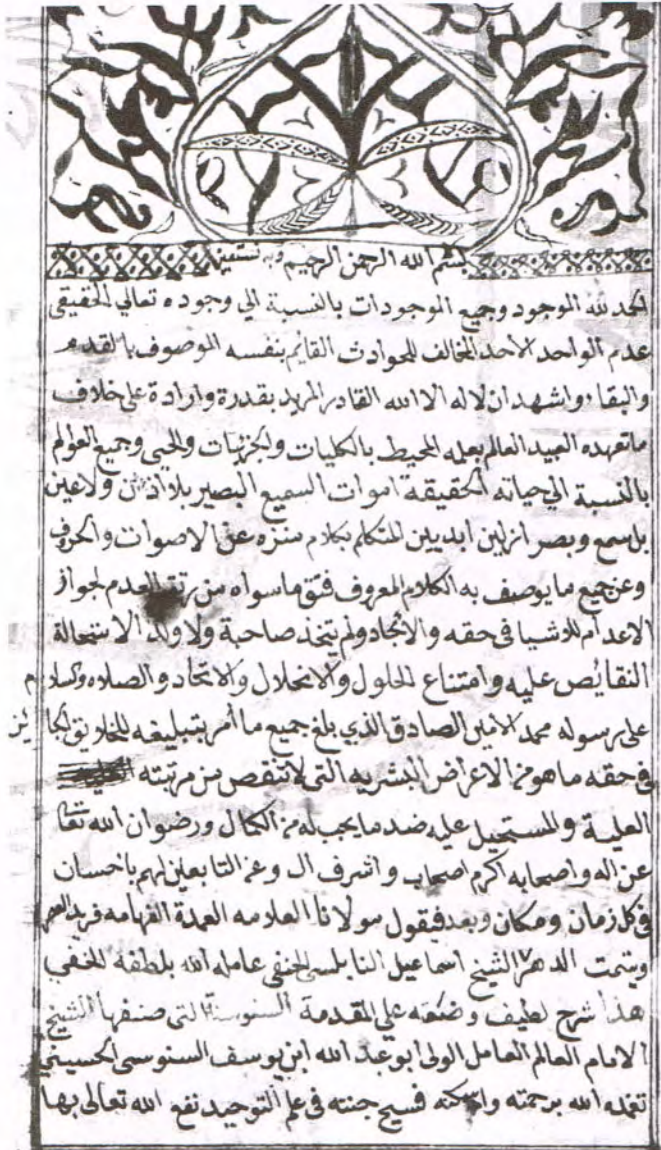 بسم الله الرحمن الرحيم وبه نستعين
الحمد لله الموجود وجميع الموجودات بالنسبة الي وجوده تعالي الحقيقي
عدم الواحد الاحد المخالف للحوادث القايم بنفسه الموصوف بالقدم
والبقاء واشهد ان لا اله الا الله القادر المريد بقدرة وارادة علي خلاف
ما تعهده العبيد العالم بعلمه المحيط بالكليات والجزئيات والحي وجميع العوالم
بالنسبة الي حياته الحقيقه اموات السميع البصير بلا اذان ولا عين
بل سمع وبصر ازليين ابديين المتكلم بكلام منزه عن الاصوات والحروف
وعن جميع ما يوصف به الكلام المعروف فتق ما سواه من رتق العدم لجواز
الاعدام للاشيا في حقه والايجاد ولم يتخذ صاحبة ولا ولد الاستحالة
النقايص عليه وامتناع الحلول والانحلال والاتحاد والصلاه والسلام
علي رسوله محمد الامين الصادق الذي بلغ جميع ما أمر بتبليغه للخلايق الجايز
في حقه ما هو من الاعراض البشريه التي لا تنقص من مرتبته
العلية والمستحيل عليه ضد ما يجب له من الكمال ورضوان الله تعالى
عن اله واصحابه اكرم اصحاب واشرف ال وعن التابعين لهم باحسان
في كل زمان ومكان وبعد فيقول مولانا العلامه العمدة الفهامه فريد العصر
ويتيمت الدهر الشيخ اسماعيل النابلسي الحنفي عامله الله بلطفه الخفي
هذا شرح لطيف وضعته علي المقدمة السنوسية التي صنفها الشيخ
الامام العالم العامل الولي ابو عبد الله ابن يوسف السنوسي الحسيني
تغمده الله برحمته واسكنه فسيح جنته في علم التوحيد نفع الله تعالى بها